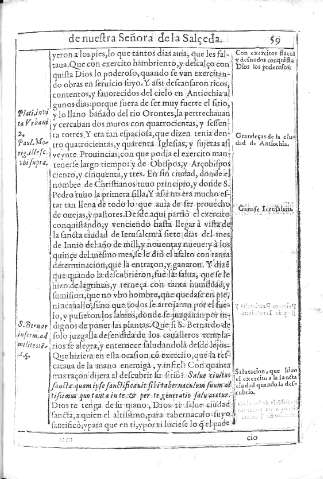 de nuestra Señora de la Salçeda. 59
yeron a los pies, lo que tantos dias auia, que les fal-
taua. Que con exercito hambriento, y descalço con-
quista Dios lo poderoso, quando se van exercitan-
do obras en seruicio suyo. Y assi descansaron ricos,
contentos, y fauorecidos del cielo en Antiochia al
gunos dias: porque fuera de ser muy fuerte el sitio,
y lo llano bañado del rio Orontes, la pertrechauan
y cercauan dos muros con quatrocientas, y sessen-
ta torres. Y era tan espaciosa, que dizen tenia den-
tro quatrocientas, y quarenta Iglesias, y sujetas assi
veynte Prouincias, con que podia el exercito man-
tenerse largo tiempo: y de Obispos, y Arçobispos
ciento, y cinquenta, y tres. En fin ciudad, donde el
nombre de Christianos tuuo principio, y donde S.
Pedro tuuo la primera silla. Y assi no era mucho es-
tar tan llena de todo lo que auia de ser prouecho
de ouejas, y pastores. Desde aqui partio el exercito
conquistando, y venciendo hasta llegar à vista de
la sancta ciudad de Ierusalem à siete dias del mes
de Iunio del año de mill, y nouenta, y nueue: y a los
quinze del mesmo mes, se le dio el assalto con tanta
determinacion, que la entraron, y ganaron. Y dizē
que quando la descubrieron, fue
de lagrimas, y terneça con tanta humildad, y
sumision, que no vbo hombre, que quedase en pie,
ni a cauallo, sino que todos se arrojaron por el sue-
lo, y pusieron los labios, donde se juzgauan por in-
dignos de poner las plantas. Que si S. Bernardo de
solo juzgalla defendida de los caualleros templa-
rios se alegra, y enternece saludandola desde lejos:
Que hiziera en esta ocasion el exercito, que la res-
cataua de la mano enemiga, y infiel? Con quanta
mas raçon dijera al descubrir su sitio: Salue ciuitas
sancta quam ipse sanctificauit sibi tabernaculum suum al
tissimus quo tanta in te & per te generatio saluaretur.
Dios te tenga de su mano, Dios te salue ciudad
sancta, a quien el altissimo, para tabernaculo suyo
santificó, y para que en ti, y por ti luciese lo q̃ el pade
cio
Con exercitos flacos
y desnudos conquista
Dios los poderosos.
Grandeças de la ciu-
dad de Antiochia.
Ganase Ierusalem.
Salutacion, que hizo
el exercito a la sancta
ciudad quando la des-
cubrio.
S. Bernar